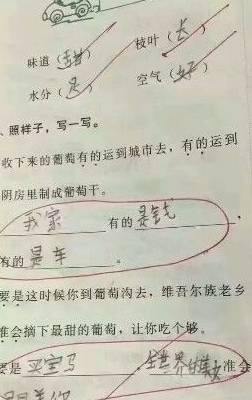 味道（甜） 枝叶（长）
水分（足） 空气（好）
、照样子，写一写。
收下来的葡萄有的运到城市去，有的运到
阴房里制成葡萄干。
我家 有的 是钱 ，
有的 是车 。
要是这时候你到葡萄沟去，维吾尔族老乡
准会摘下最甜的葡萄，让你吃个够。
要是 买宝马 ，全世界的美女 准会